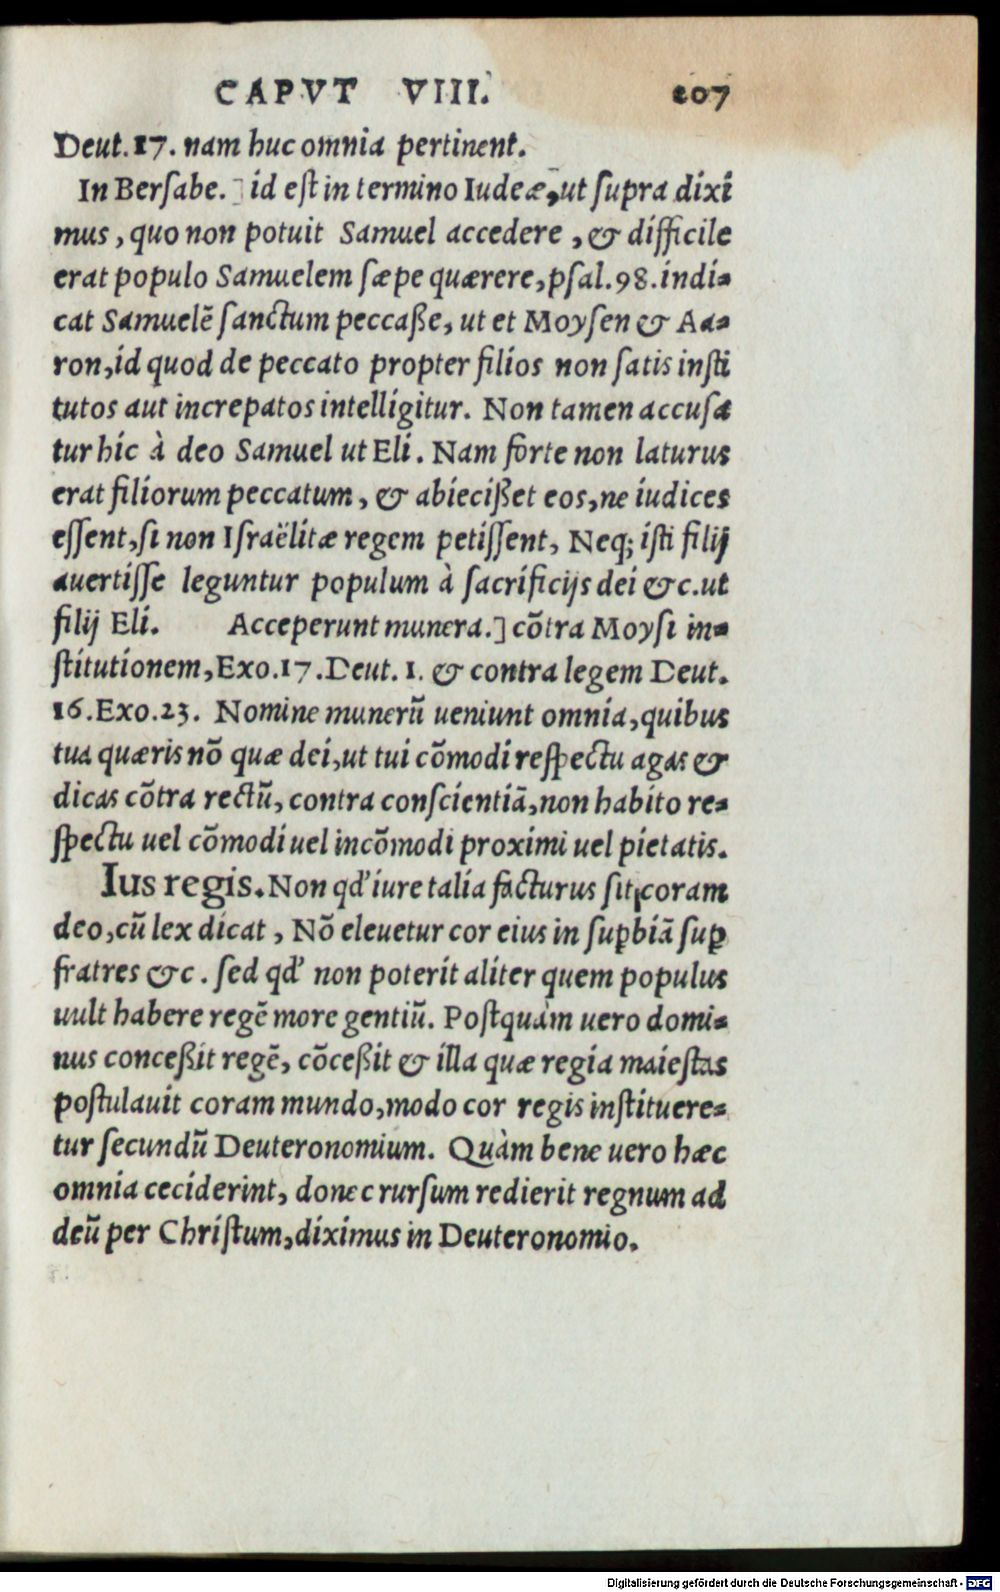 CAPVT VIII. 207
Deut. 17. nam huc omnia pertinent.
In Bersabe.] id est in termino Iudeæ, ut supra dixi
mus, quo non potuit Samuel accedere, & difficile
erat populo Samuelem sæpe quærere, psal. 98. indi-
cat Samuelẽ sanctum peccaße, ut et Moysen & Aa-
ron, id quod de peccato propter filios non satis insti
tutos aut increpatos intelligitur. Non tamen accusa
tur hic à deo Samuel ut Eli. Nam forte non laturus
erat filiorum peccatum, & abiecißet eos, ne iudices
essent, si non Israëlitæ regem petissent, Neq; isti filij
auertisse leguntur populum à sacrificijs dei &c. ut
filij Eli. Acceperunt munera.] cõtra Moysi in-
stitutionem, Exo. 17. Deut. 1. & contra legem Deut.
16. Exo. 23. Nomine munerũ ueniunt omnia, quibus
tua quæris nõ quæ dei, ut tui cõmodi respectu agas &
dicas cõtra rectũ, contra conscientiã, non habito re-
spectu uel cõmodi uel incõmodi proximi uel pietatis.
Ius regis. Non qd' iure talia facturus sit coram
deo, cũ lex dicat, Nõ eleuetur cor eius in suꝑbiã suꝑ
fratres &c. sed qd' non poterit aliter quem populus
uult habere regẽ more gentiũ. Postquàm uero domi-
nus conceßit regẽ, cõceßit & illa quæ regia maiestas
postulauit coram mundo, modo cor regis instituere-
tur secundũ Deuteronomium. Quàm bene uero hæc
omnia ceciderint, donec rursum redierit regnum ad
deũ per Christum, diximus in Deuteronomio.
Digitalisierung gefördert durch die Deutsche Forschungsgemeinschaft - DFG